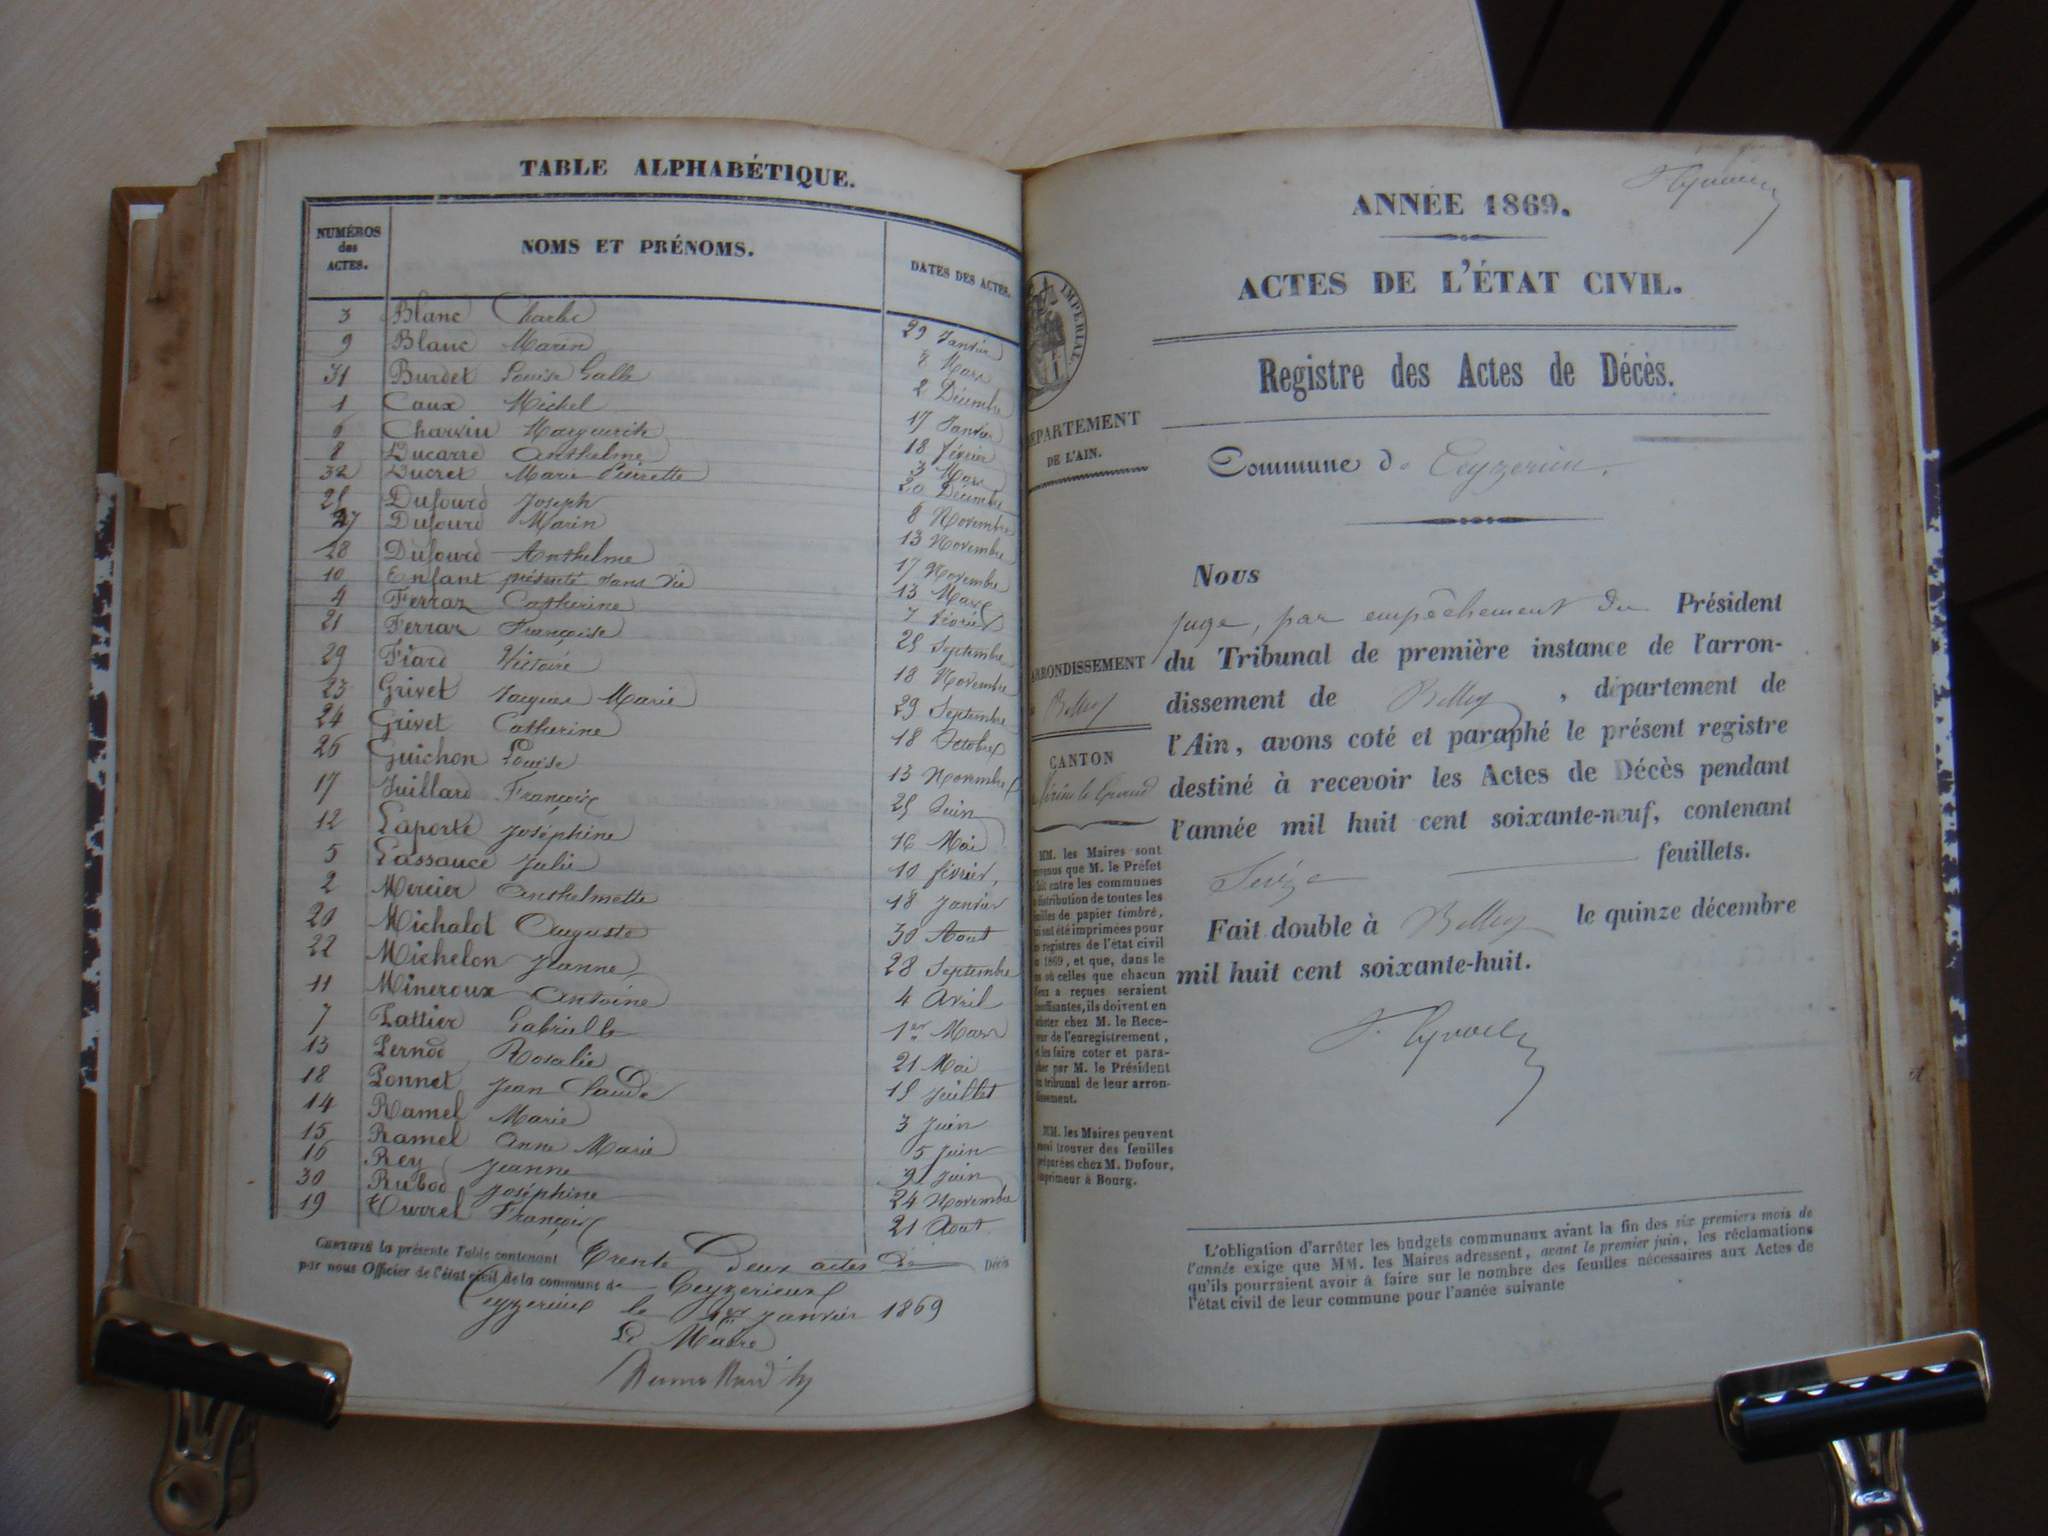 TABLE ALPHABÉTIQUE.
NUMÉROS des ACTES. NOMS ET PRÉNOMS. DATES DES ACTES.
3 Blanc Charles 29 Janvier
9 Blanc Marin 8 Mars
31 Burdet Louise Galle 2 Décembre
1 Caux Michel 17 Janvier
6 Charvin Marguerite 18 février
8 Ducarre Anthelme 3 Mars
32 Ducret Marie Pierrette 20 Décembre
25 Dufourd Joseph 8 Novembre
27 Dufourd Marin 13 Novembre
28 Dufourd Anthelme 17 Novembre
10 Enfant présenté sans vie 13 Mars
4 Ferraz Catherine 7 février
21 Ferraz Françoise 25 Septembre
29 Fiard Victoire 18 Novembre
23 Grivet Jacques Marie 29 Septembre
24 Grivet Catherine 18 Octobre
26 Guichon Louise 13 Novembre
17 Juillard François 25 Juin
12 Laporte Joséphine 16 Mai
5 Lassauce Julie 10 février,
2 Mercier Anthelmette 18 Janvier
20 Michalot Auguste 30 Aout
22 Michelon Jeanne 28 Septembre
11 Mineroux Antoine 4 Avril
7 Pattier Gabrielle 1er Mars
13 Pernod Rosalie 21 Mai
18 Ponnet Jean Claude 15 Juillet
14 Ramel Marie 3 Juin
15 Ramel Anne Marie 5 Juin
16 Rey Jeanne 9 Juin
30 Rubod Joséphine 24 Novembre
19 Turrel François 21 Aout
CERTIFIÉ la présente Table contenant Trente Deux actes de Décès
par nous Officier de l'état civil de la commune de Ceyzerieux
Ceyzerieux le 1er janvier 1869
Le Maire
ANNÉE 1869.
ACTES DE L'ÉTAT CIVIL.
Registre des Actes de Décès.
IMPÉRIAL
DÉPARTEMENT
DE L'AIN.
Commune de Ceyzerieu.
Nous
juge, par empêchement du Président
du Tribunal de première instance de l'arron-
dissement de Belley, département de
l'Ain, avons coté et paraphé le présent registre
destiné à recevoir les Actes de Décès pendant
l'année mil huit cent soixante-neuf, contenant
Seize feuillets.
Fait double à Belley le quinze décembre
mil huit cent soixante-huit.
ARRONDISSEMENT
Belley
CANTON
Virieu le Grand
MM. les Maires sont
prévenus que M. le Préfet
fait entre les communes
la distribution de toutes les
feuilles de papier timbré,
qui ont été imprimées pour
les registres de l'état civil
de 1869, et que, dans le
cas où celles que chacun
d'eux a reçues seraient
insuffisantes, ils doivent en
acheter chez M. le Rece-
veur de l'enregistrement,
et les faire coter et para-
pher par M. le Président
du tribunal de leur arron-
dissement.
MM. les Maires peuvent
aussi trouver des feuilles
préparées chez M. Dufour,
imprimeur à Bourg.
L'obligation d'arrêter les budgets communaux avant la fin des six premiers mois de
l'année exige que MM. les Maires adressent, avant le premier juin, les réclamations
qu'ils pourraient avoir à faire sur le nombre des feuilles nécessaires aux Actes de
l'état civil de leur commune pour l'année suivante